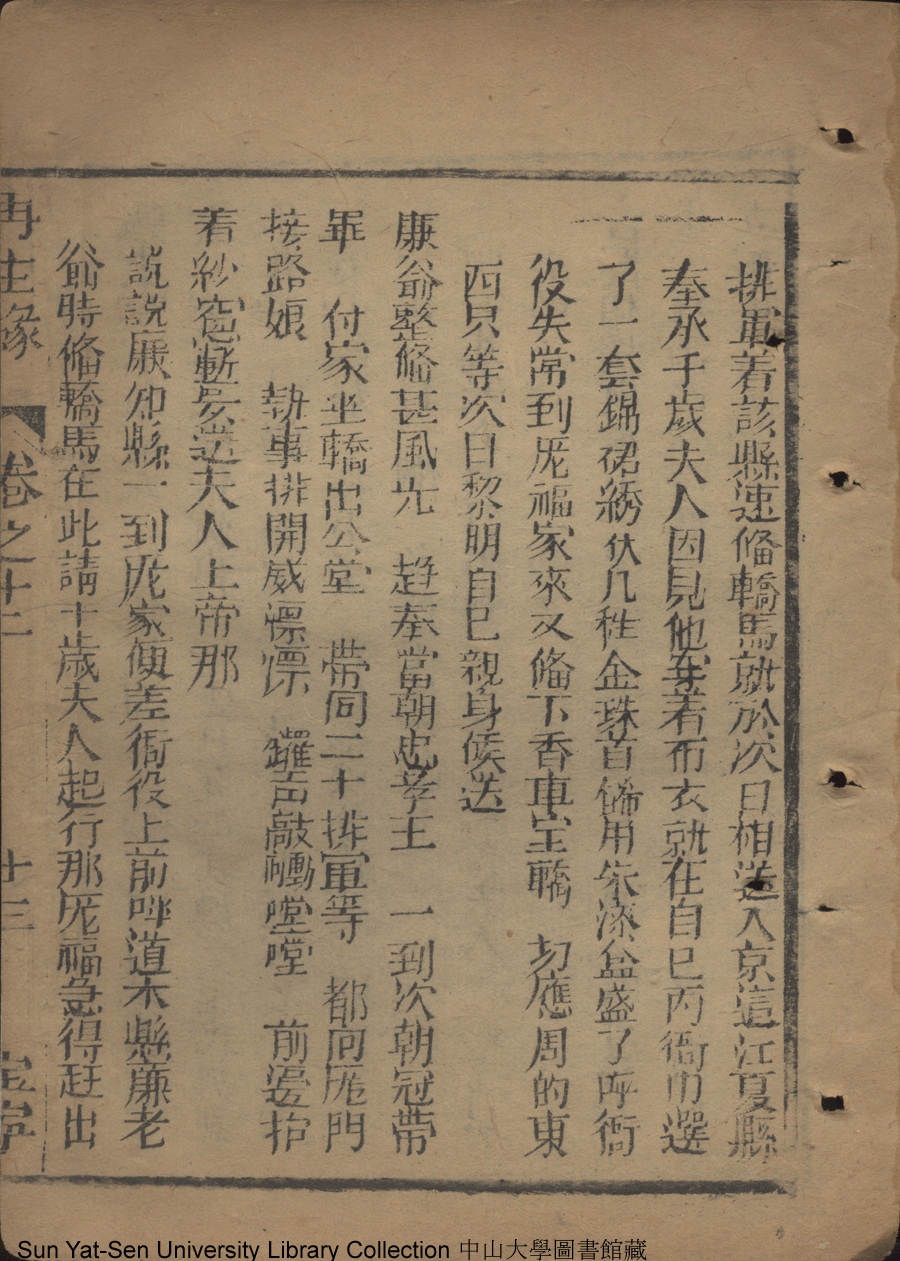 排軍着該縣速俻轎馬就於次日相送入京這江夏縣
奉承千歲夫人因見他穿着布衣就在自巳丙衙巾選
了一套錦裙綉伏几秏金珠首俻用朱漆盆盛了呼衙
役失常到厐福家來又俻下香車宝轎 勿應周的東
西只等次日黎明自巳親身候送
廉翁整俻甚風光 趋奉當朝忠孝王 一到次朝冠帶
畢 付家坐轎出公堂 帶同二十排軍等 都囘厐門
接路娘 執事排開威凛凛 鑼声敲𢥠嘡嘡 前邊护
着紗窓暫妥送夫人上帝那
説説廉知縣一到厐家便差衙役上前呌道本縣廉老
爺時俻轎馬在此請十歲夫人起行那厐福急得赶出
再生緣 卷之十二 十三 宝寧
Sun Yat-Sen University Library Collection 中山大學圖書館藏